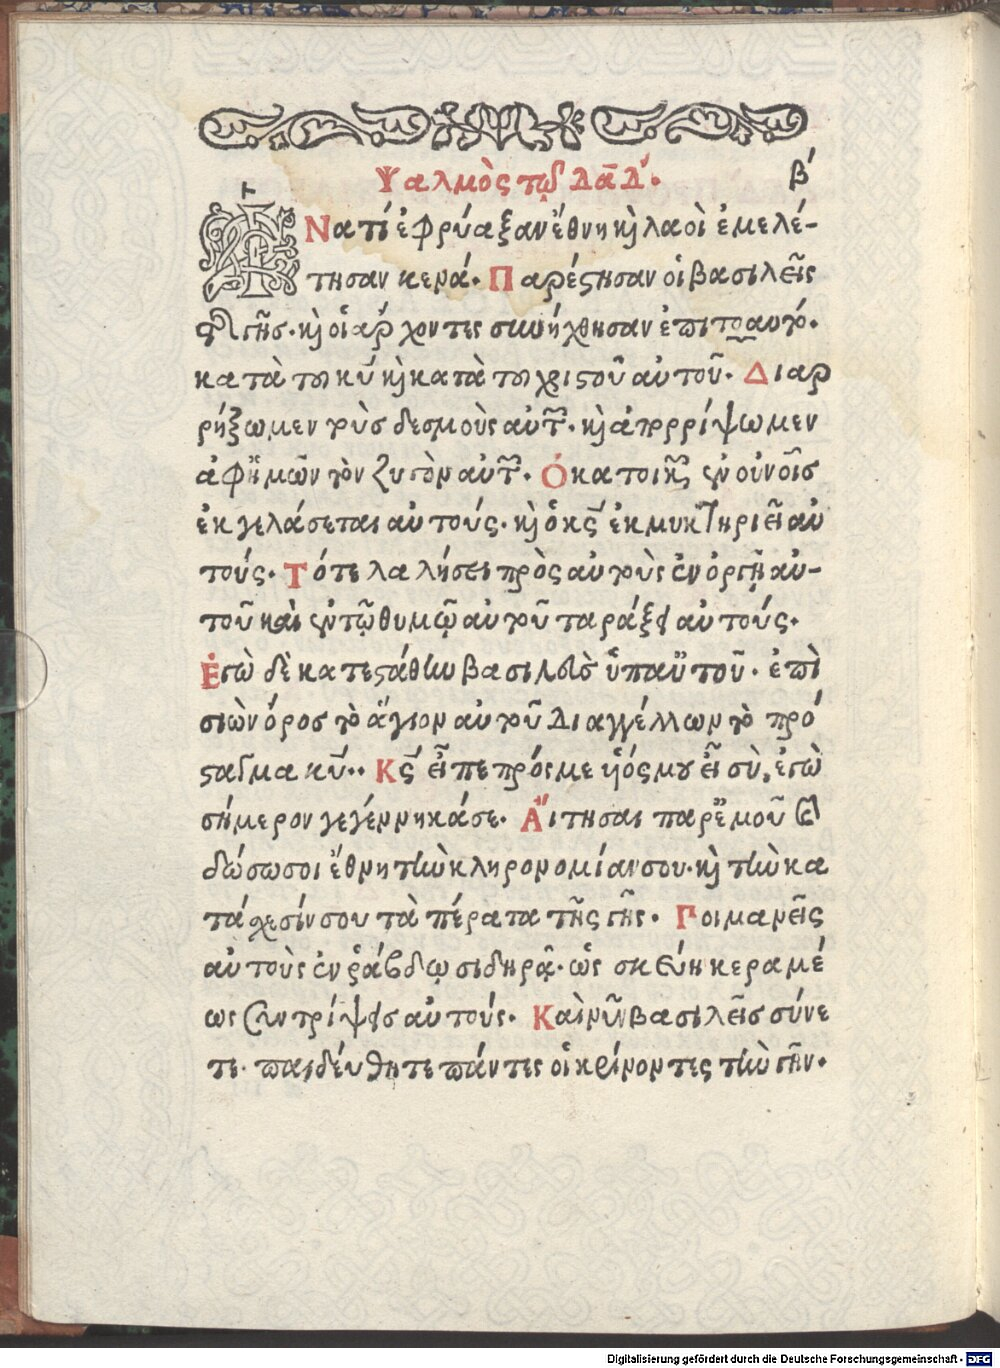 Ψαλμὸς τῷ Δᾱδ. β´
Ἵνα τί ἐφρύαξαν ἔθνη κ̀ λαοὶ ἐμελέ-
τησαν κενά. Παρέστησαν οἱ βασιλεῖς
τῆς γῆς. κ̀ οἱ ἄρχοντες συνήχθησαν ἐπιτοαυτό.
κατὰ τοῦ κῡ κ̀ κατὰ τοῦ χριστοῦ αὐτοῦ. Διαρ
ρήξωμεν τοὺς δεσμοὺς αὐτῶν. κ̀ ἀπορρίψωμεν
ἀφ' ἡμῶν τὸν ζυγὸν αὐτῶν. Ὁ κατοικῶν ἐν οὐνοῖς
ἐκγελάσεται αὐτούς. κ̀ ὁ κς̄ ἐκμυκτηριεῖ αὐ
τούς. Τότε λαλήσει πρὸς αὐτοὺς ἐν ὀργῇ αὐ-
τοῦ καὶ ἐν τῷ θυμῷ αὐτοῦ ταράξει αὐτούς.
Ἐγὼ δὲ κατεστάθην βασιλεὺς ὑπ' αὐτοῦ. ἐπὶ
σιὼν ὄρος τὸ ἅγιον αὐτοῦ Διαγγέλλων τὸ πρό
σταγμα κῡ. Κς̄ εἶπε πρός με υἱός μου εἶ σὺ, ἐγὼ
σήμερον γεγέννηκά σε. Αἴτησαι παρ' ἐμοῦ κ̀
δώσω σοι ἔθνη τὴν κληρονομίαν σου. κ̀ τὴν κα
τάχεσίν σου τὰ πέρατα τῆς γῆς. Ποιμανεῖς
αὐτοὺς ἐν ῥάβδῳ σιδηρᾷ. ὡς σκεύη κεραμέ
ως συντρίψεις αὐτούς. Καὶ νῦν βασιλεῖς σύνε
τε. παιδεύθητε πάντες οἱ κρίνοντες τὴν γῆν.
Digitalisierung gefördert durch die Deutsche Forschungsgemeinschaft - DFG